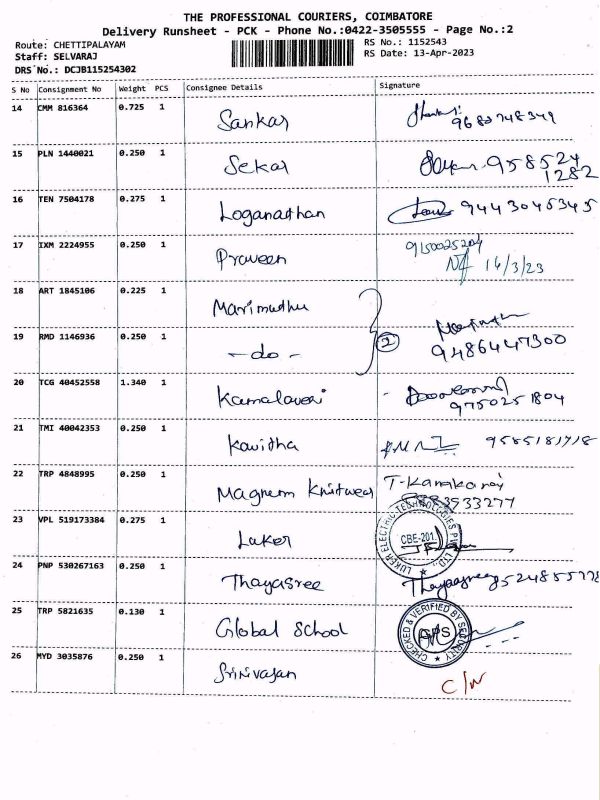 THE PROFESSIONAL COURIERS, COIMBATORE
Delivery Runsheet - PCK - Phone No.:0422-3505555 - Page No.:2
Route: CHETTIPALAYAM
Staff: SELVARAJ
DRS No.: DCJB115254302
RS No.: 1152543
RS Date: 13-Apr-2023
S No Consignment No Weight PCS Consignee Details Signature
14 CMM 816364 0.725 1 Sankar
15 PLN 1440021 0.250 1 Sekar 958524
1282
16 TEN 7504178 0.275 1 Loganathan 9443045345
17 IXM 2224955 0.250 1 Praveen
18 ART 1845106 0.225 1 Marimuthu
19 RMD 1146936 0.250 1 -do- 2
9486447300
20 TCG 40452558 1.340 1
9750251804
21 TMI 40042353 0.250 1 Kavitha 9585181718
22 TRP 4848995 0.250 1 Magnum Knitwear
23 VPL 519173384 0.275 1 Luker
LUKER ELECTRIC TECHNOLOGIES PVT. LTD.,
CBE-201.
24 PNP 530267163 0.250 1 Thayasree
25 TRP 5821635 0.130 1 Global School
CHECKED & VERIFIED BY SECURITY
GPS
26 MYD 3035876 0.250 1 Srinivasan C/N